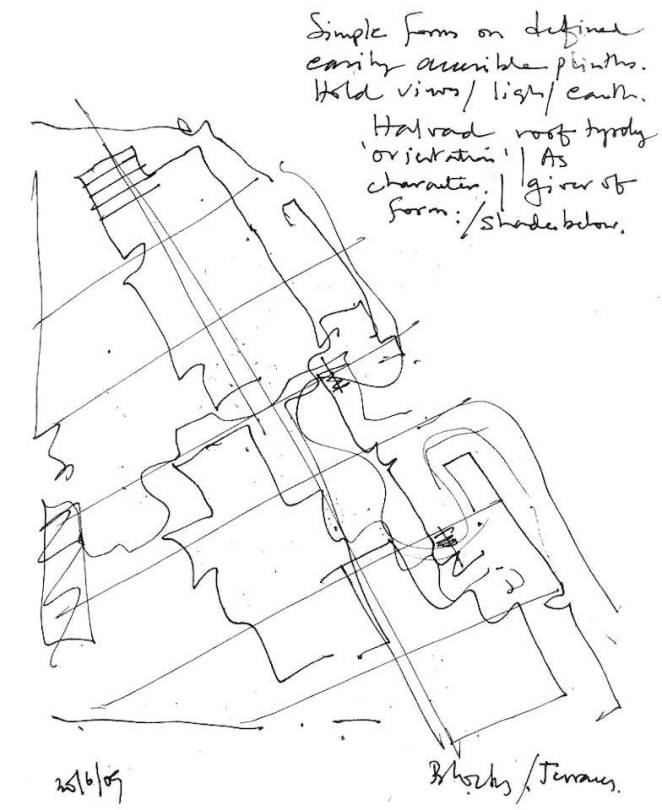 Simple forms on defined
easily accessible plinths.
Hold views / light / earth.
roof
'orientation' | As
character. | giver of
form: / shades below.
Blocks / Terraces.